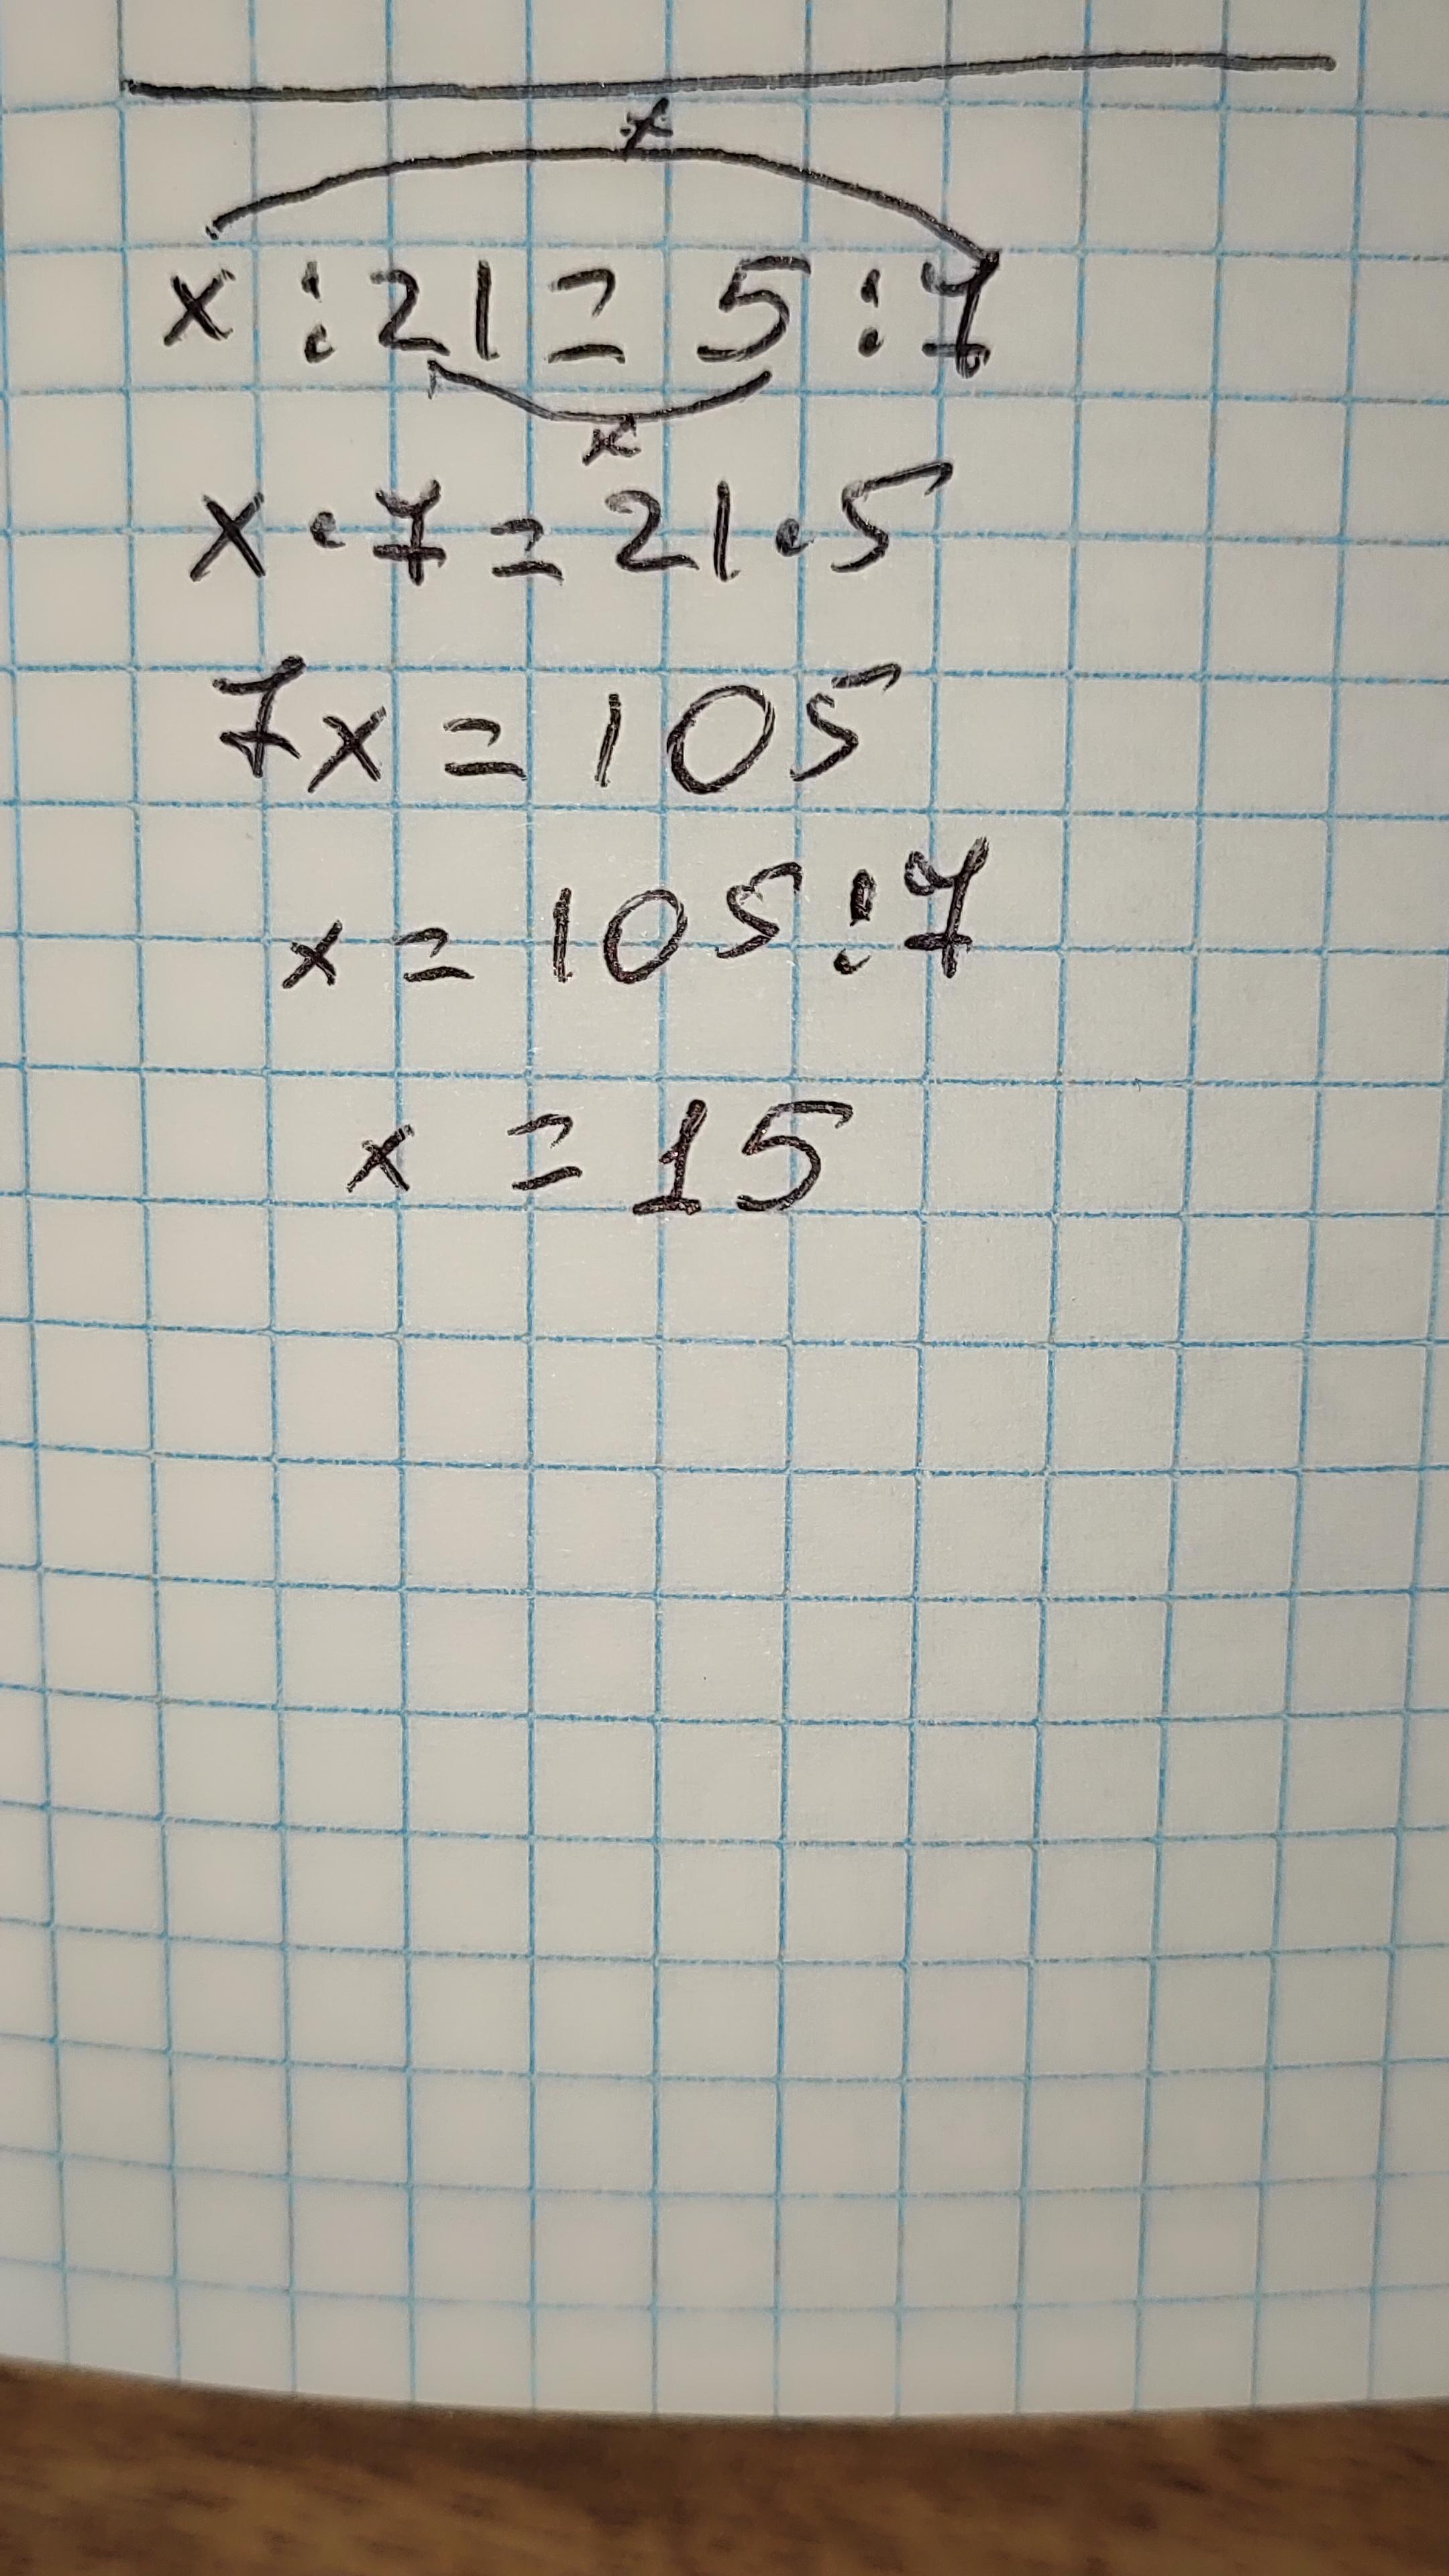 x
x : 21 = 5 : 7
x
x · 7 = 21 · 5
7x = 105
x = 105 : 7
x = 15